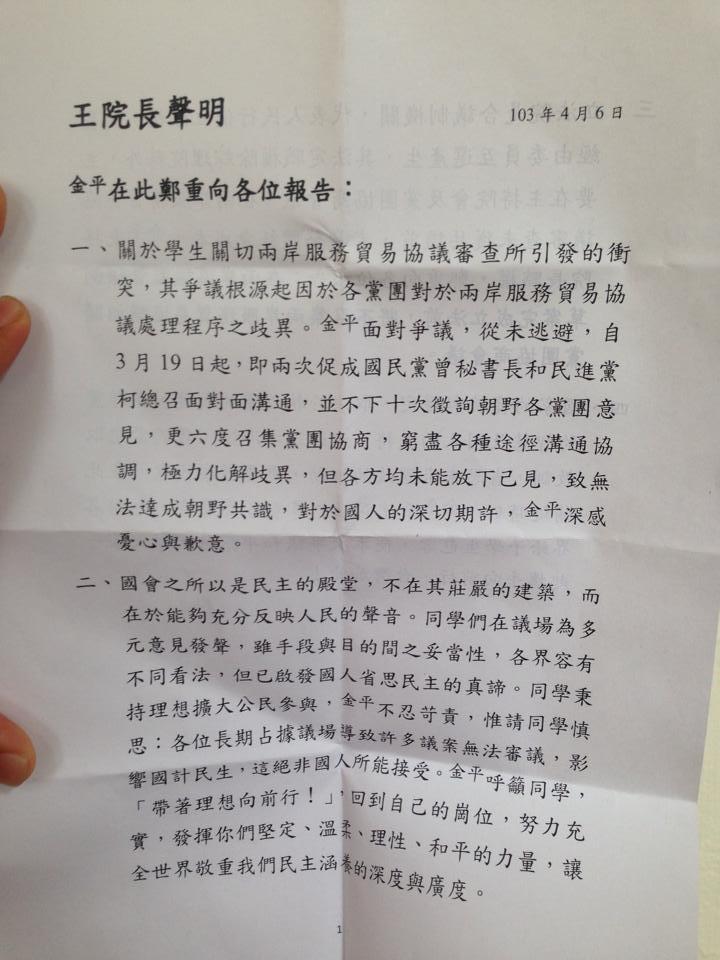 王院長聲明
103年4月6日
金平在此鄭重向各位報告：
一、關於學生關切兩岸服務貿易協議審查所引發的衝
突，其爭議根源起因於各黨團對於兩岸服務貿易協
議處理程序之歧異。金平面對爭議，從未逃避，自
3月19日起，即兩次促成國民黨曾秘書長和民進黨
柯總召面對面溝通，並不下十次徵詢朝野各黨團意
見，更六度召集黨團協商，窮盡各種途徑溝通協
調，極力化解歧異，但各方均未能放下己見，致無
法達成朝野共識，對於國人的深切期許，金平深感
憂心與歉意。
二、國會之所以是民主的殿堂，不在其莊嚴的建築，而
在於能夠充分反映人民的聲音。同學們在議場為多
元意見發聲，雖手段與目的間之妥當性，各界容有
不同看法，但已啟發國人省思民主的真諦。同學秉
持理想擴大公民參與，金平不忍苛責，惟請同學慎
思：各位長期占據議場導致許多議案無法審議，影
響國計民生，這絕非國人所能接受。金平呼籲同學，
「帶著理想向前行！」，回到自己的崗位，努力充
實，發揮你們堅定、溫柔、理性、和平的力量，讓
全世界敬重我們民主涵養的深度與廣度。
1